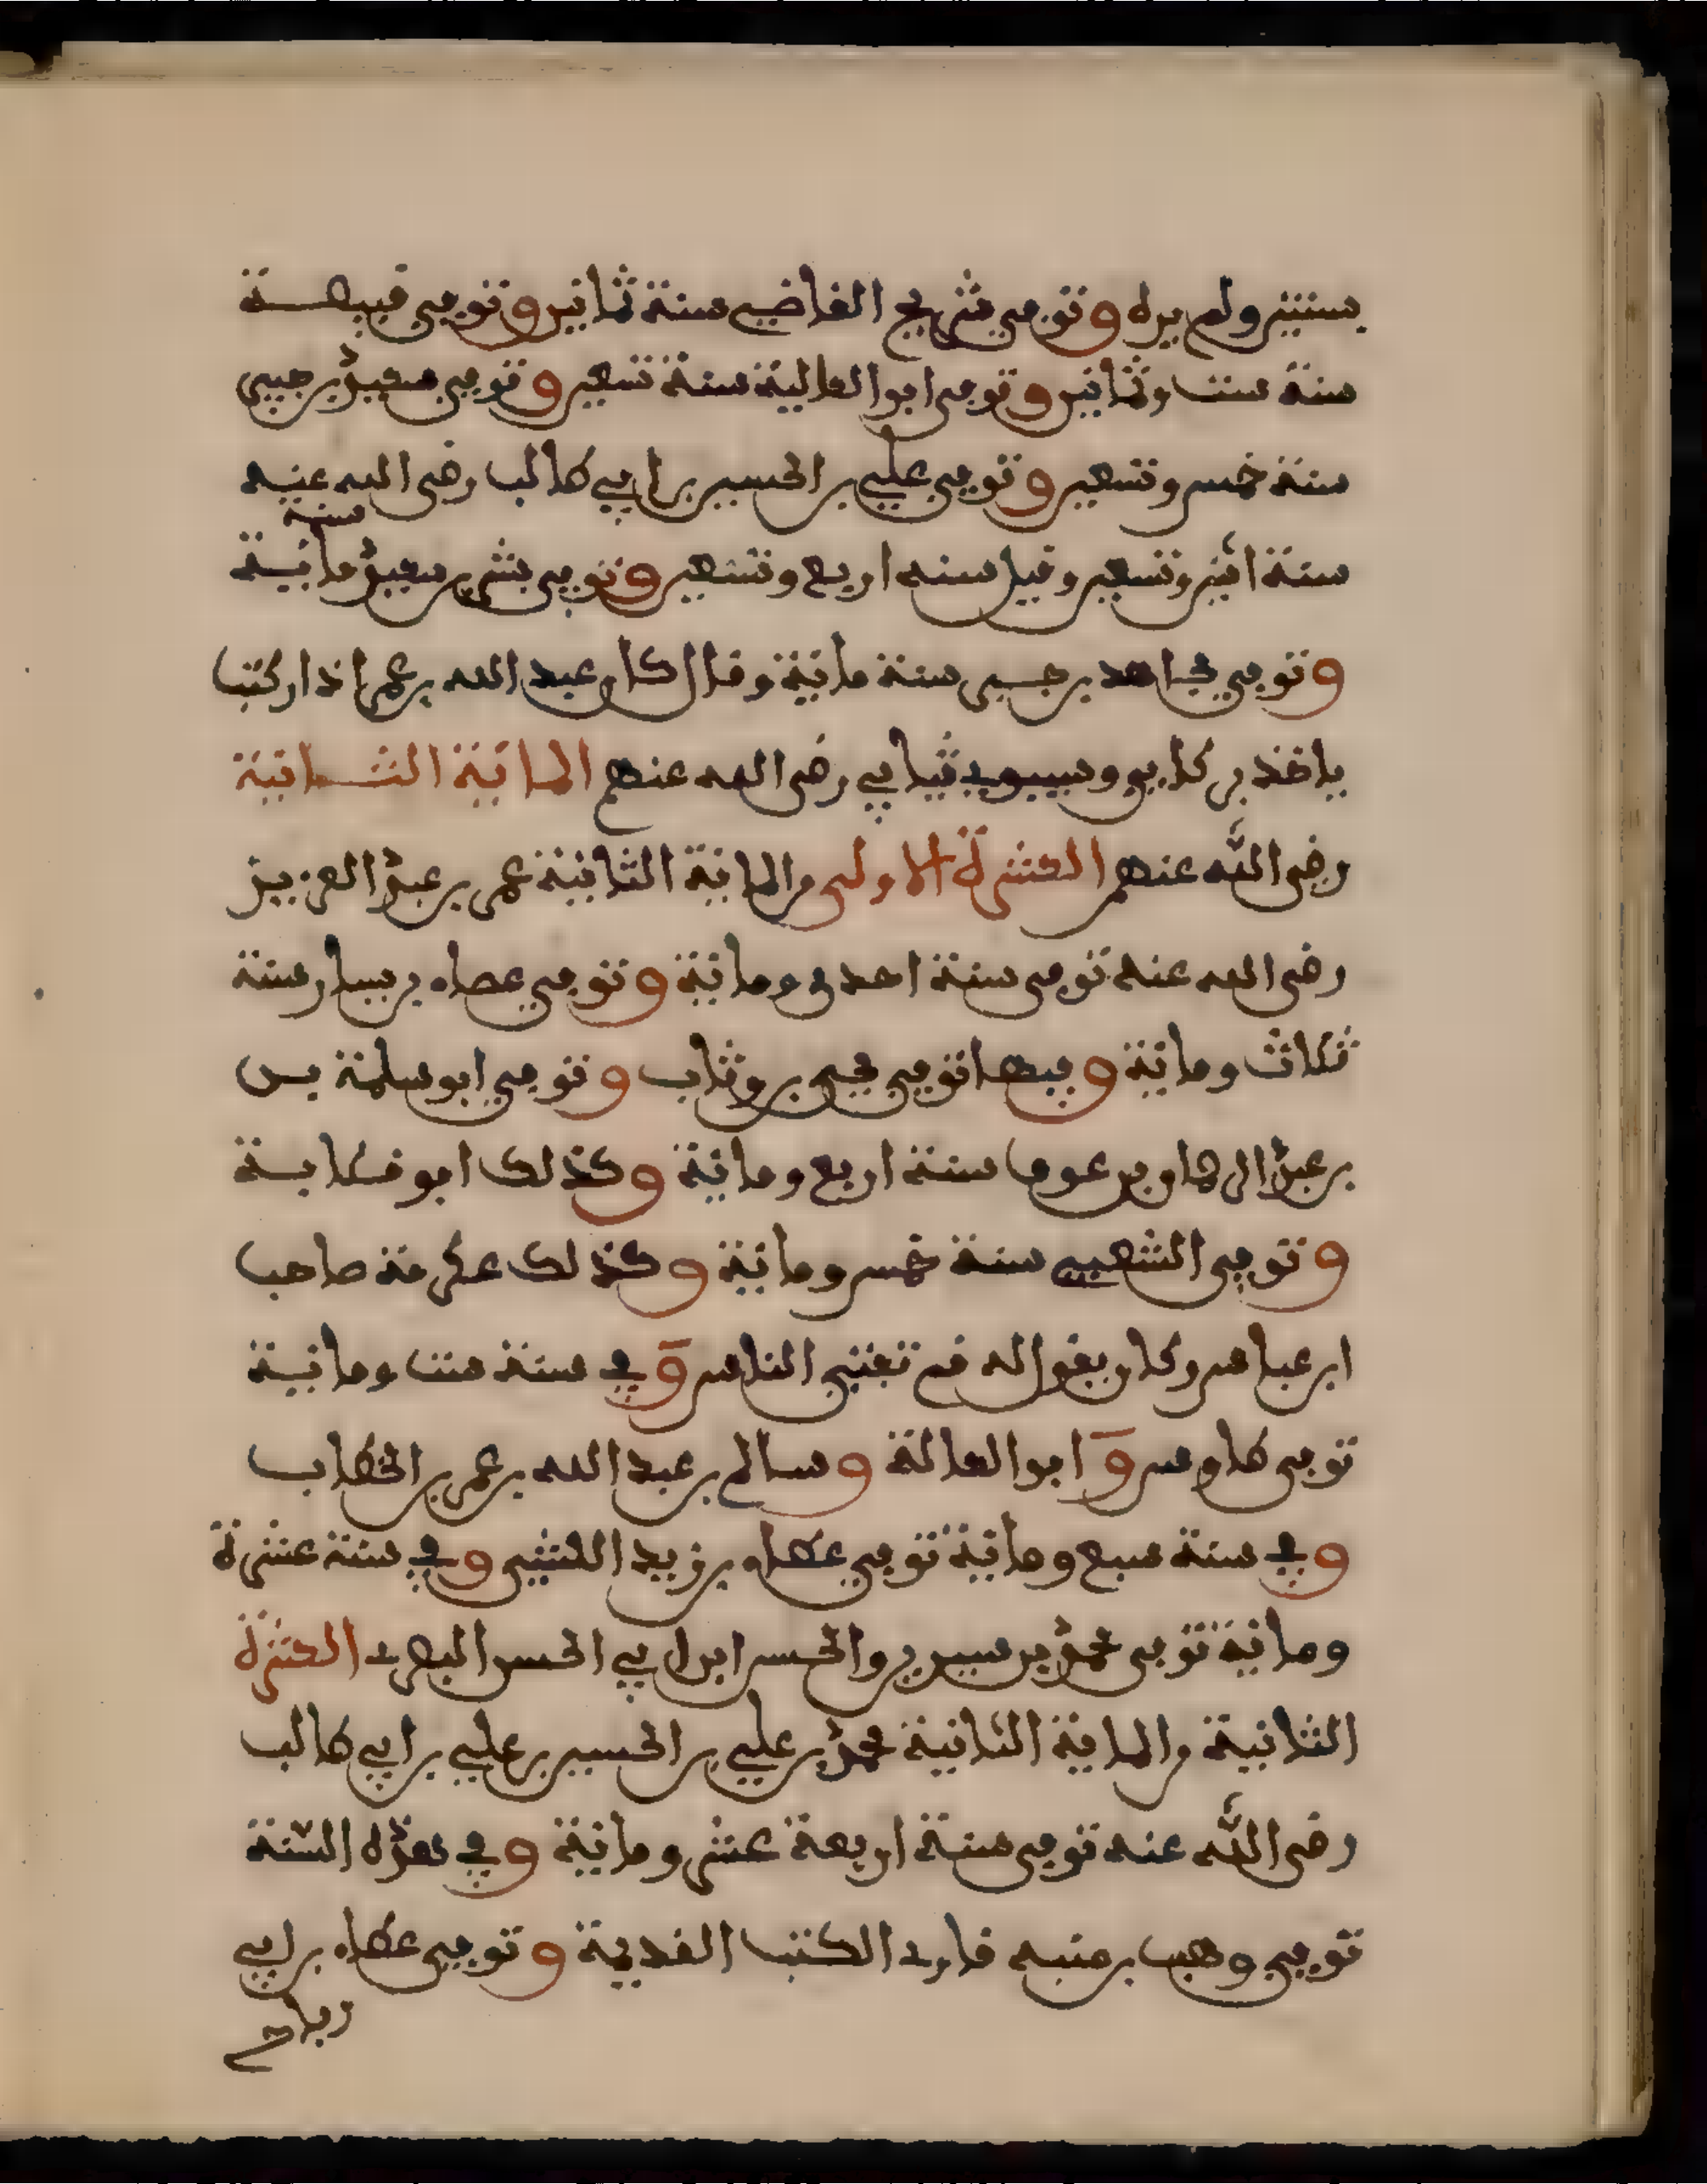 بسنتين ولم يره وتوفي شريح القاضي سنة ثمانين وتوفي قبيصة
سنة ست وثمانين وتوفي ابوا العالية سنة تسعين وتوفي سعيد بن جبير
سنة خمس وتسعين وتوفي علي بن الحسين بن ابي طالب رضي الله عنه
سنة اثنين وتسعين وقيل سنه اربع وتسعين وتوفي بشر بن سعيد سنة مائية
وتوفي مجاهد بن جبير سنة مائية وقال كان عبد الله بن عمر اذا ركبت
ياخذ بركابي ويسوي ثيابي رضي الله عنهم المائية الثانية
رضي الله عنهم العشرة الاولى من المائية الثانية عمر بن عبد العزيز
رضي الله عنه توفي سنة احدى ومائية وتوفي عطاء بن يسار سنة
ثلاث ومائية وفيها توفي يحيى بن وثاب وتوفي ابو سلمة بن
بن عبد الرحمان بن عوف سنة اربع ومائية وكذلك ابو قلابة
وتوفي الشعبي سنة خمس ومائية وكذلك عكرمة صاحب
ابن عباس وكان يقول له قم تفتي الناس وفي سنة ست ومائية
توفي طاوس وابوا العالة وسالم بن عبد الله بن عمر بن الخطاب
وفي سنة سبع ومائية توفي عطاء بن زيد الليثي وفي سنة عشرة
ومائية توفي محمد بن سيرين والحسن ابن ابي الحسن البصري العشرة
الثانية من المائية الثانية محمد بن علي بن الحسين بن علي بن ابي طالب
رضي الله عنه توفي سنة اربعة عشر ومائية وفي هذه السنة
توفي وهب بن منبه قارئ الكتب القديمة وتوفي عطاء بن ابي
رباح